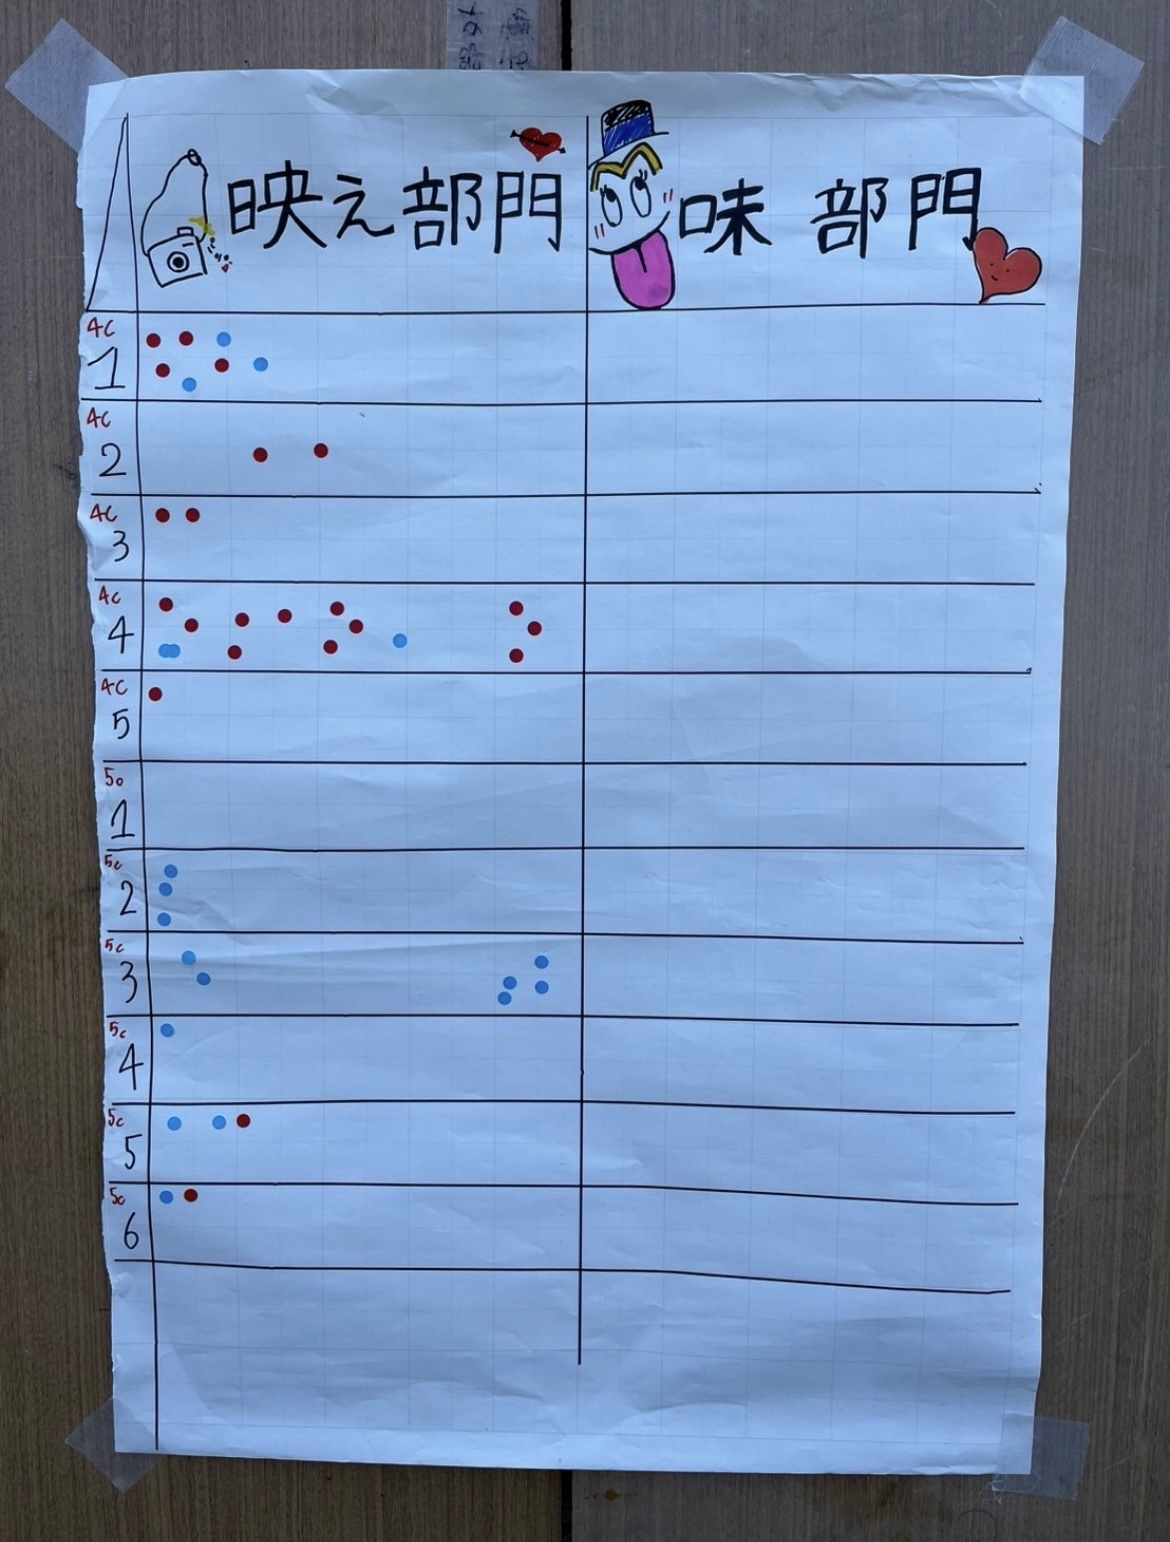 映え部門 味部門
4C 1
4C 2
4C 3
4C 4
4C 5
5c 1
5c 2
5c 3
5c 4
5c 5
5c 6